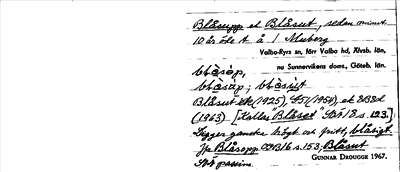 Blåsupp el Blåsut, sedan minst
10 år öde t å 1 Muberg
Valbo-Ryrs sn, förr Valbo hd, Älvsb. län,
nu Sunnervikens doms., Göteb. län.
blå̀sóp,
blå̀sùp; blå̀sùt
Blåsut (1925), (1954), ek 3B3d
(1963) [Kallas "Blåset" 18 s. 123.]
Ligger ganska högt och fritt, blåsigt.
Jfr Blåsopp OGB16 s. 153; Blåsut
passim.
GUNNAR DROUGGE 1967.